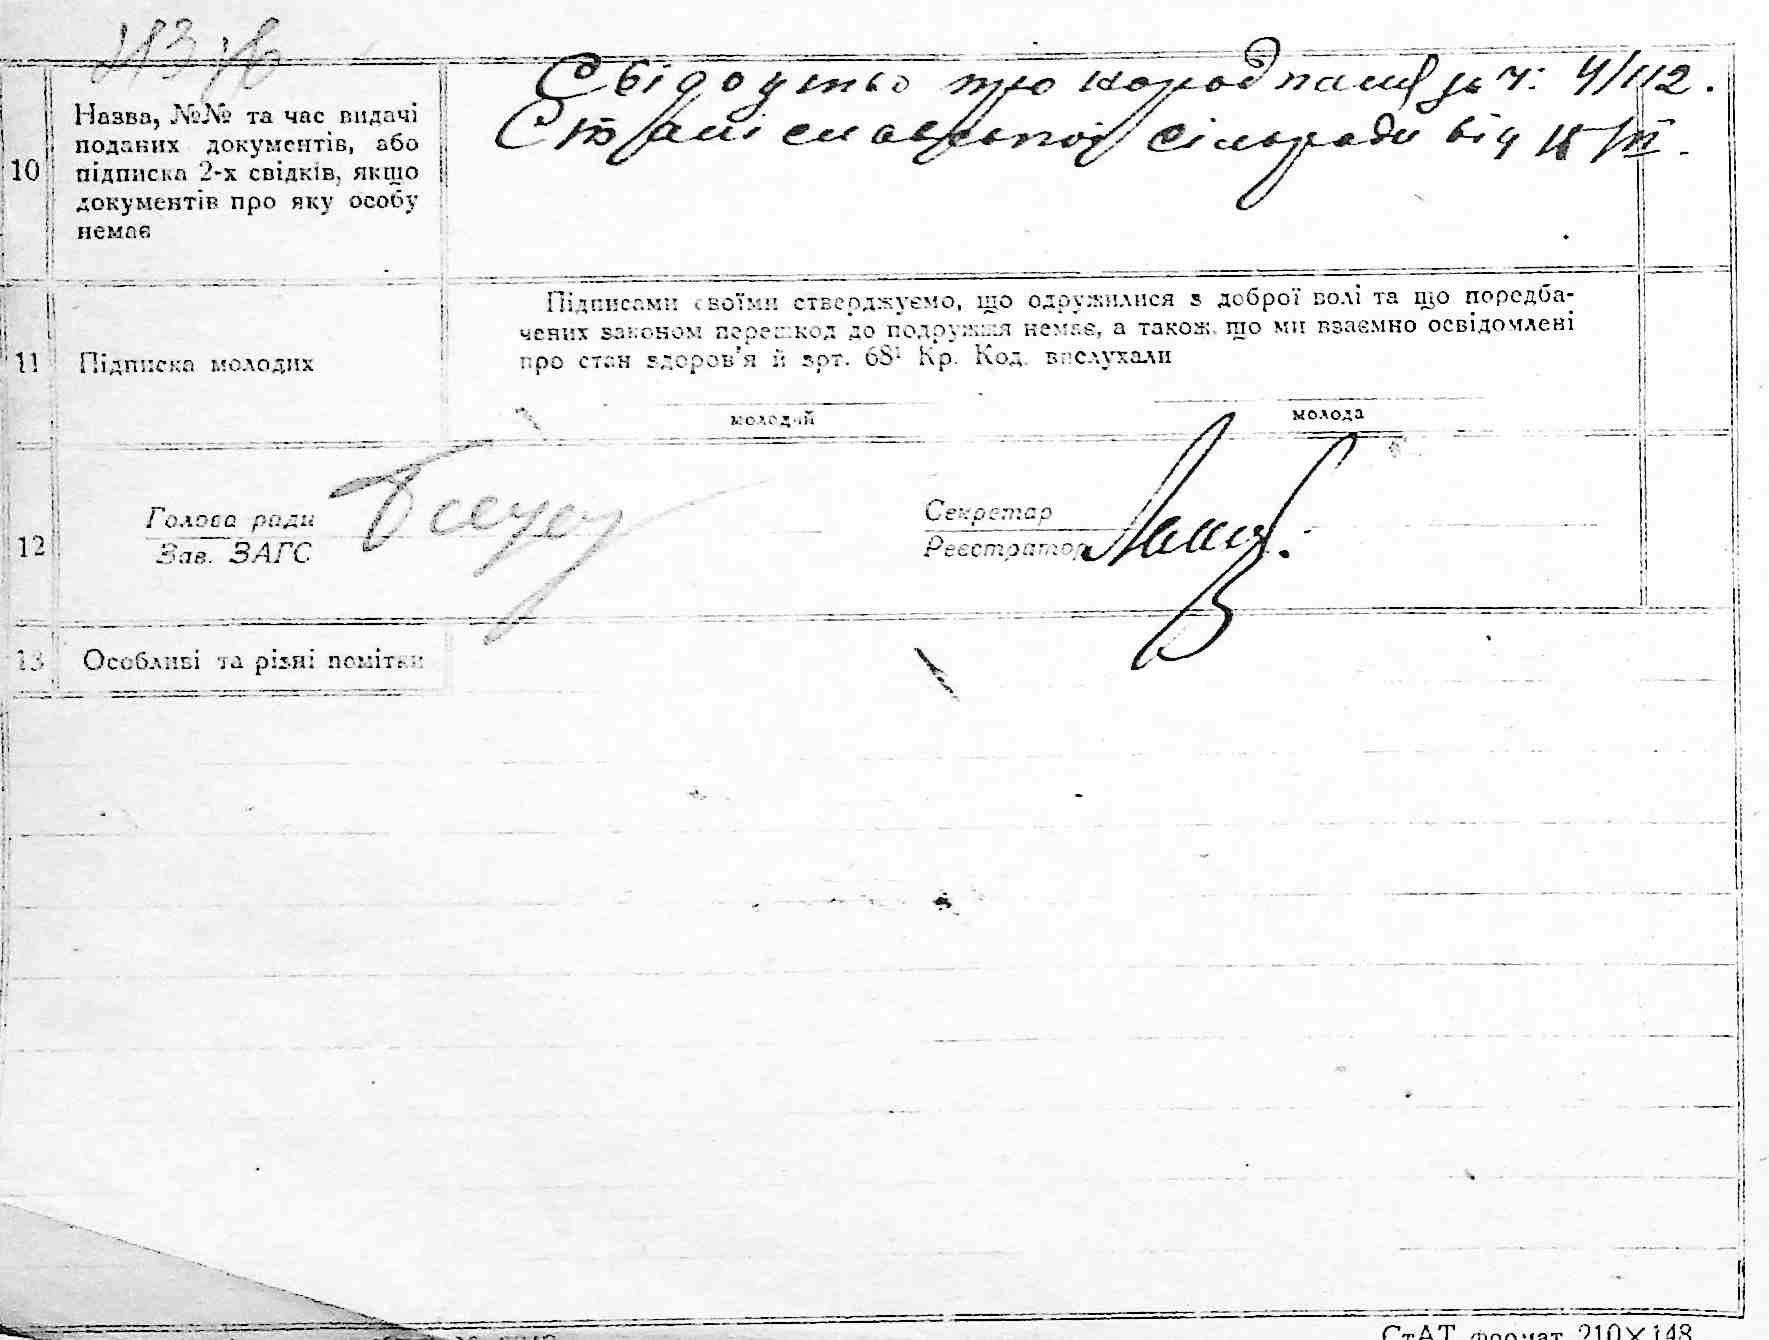 10
Назва, №№ та час видачі
поданих документів, або
підписка 2-х свідків, якщо
документів про яку особу
немає
Свідоцтво про народ за ч: 4/112.
Станіславської сільради від
11
Підписка молодих
Підписами своїми стверджуємо, що одружилися з доброї волі та що передба-
чених законом перешкод до подружжя немає, а також, що ми взаємно освідомлені
про стан здоров'я й арт. 68¹ Кр. Код. вислухали
молодий
молода
12
Голова ради
Зав. ЗАГС
Секретар
Реєстратор
13
Особливі та різні помітки
СтАТ формат 210×148